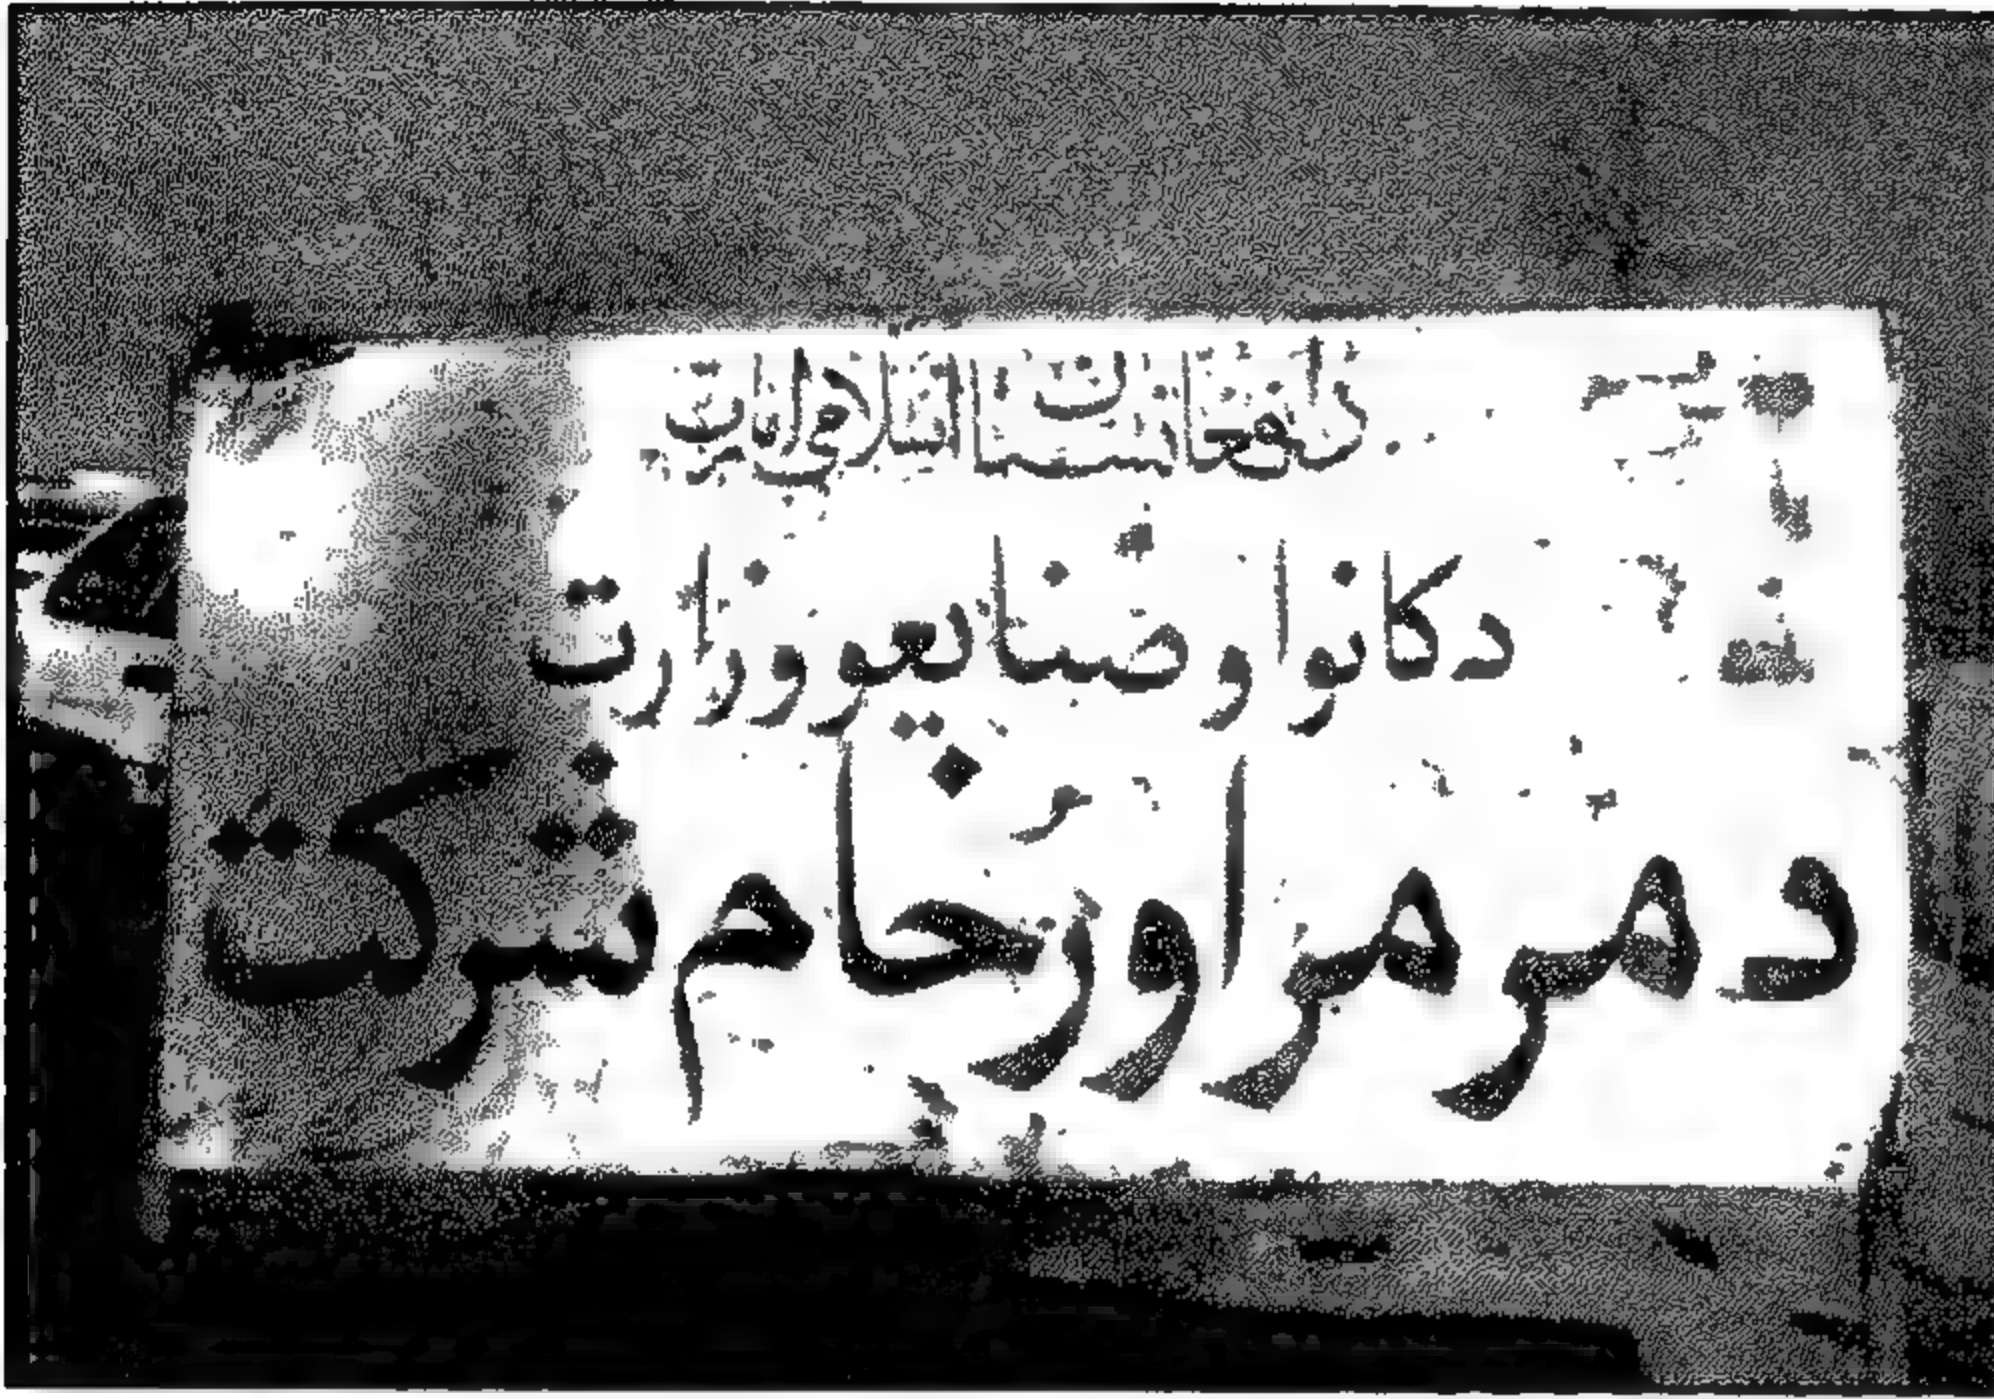 د افغانستان اسلامی امارت
د کانو او صنایعو وزارت
د مرمرو او رخام شرکت